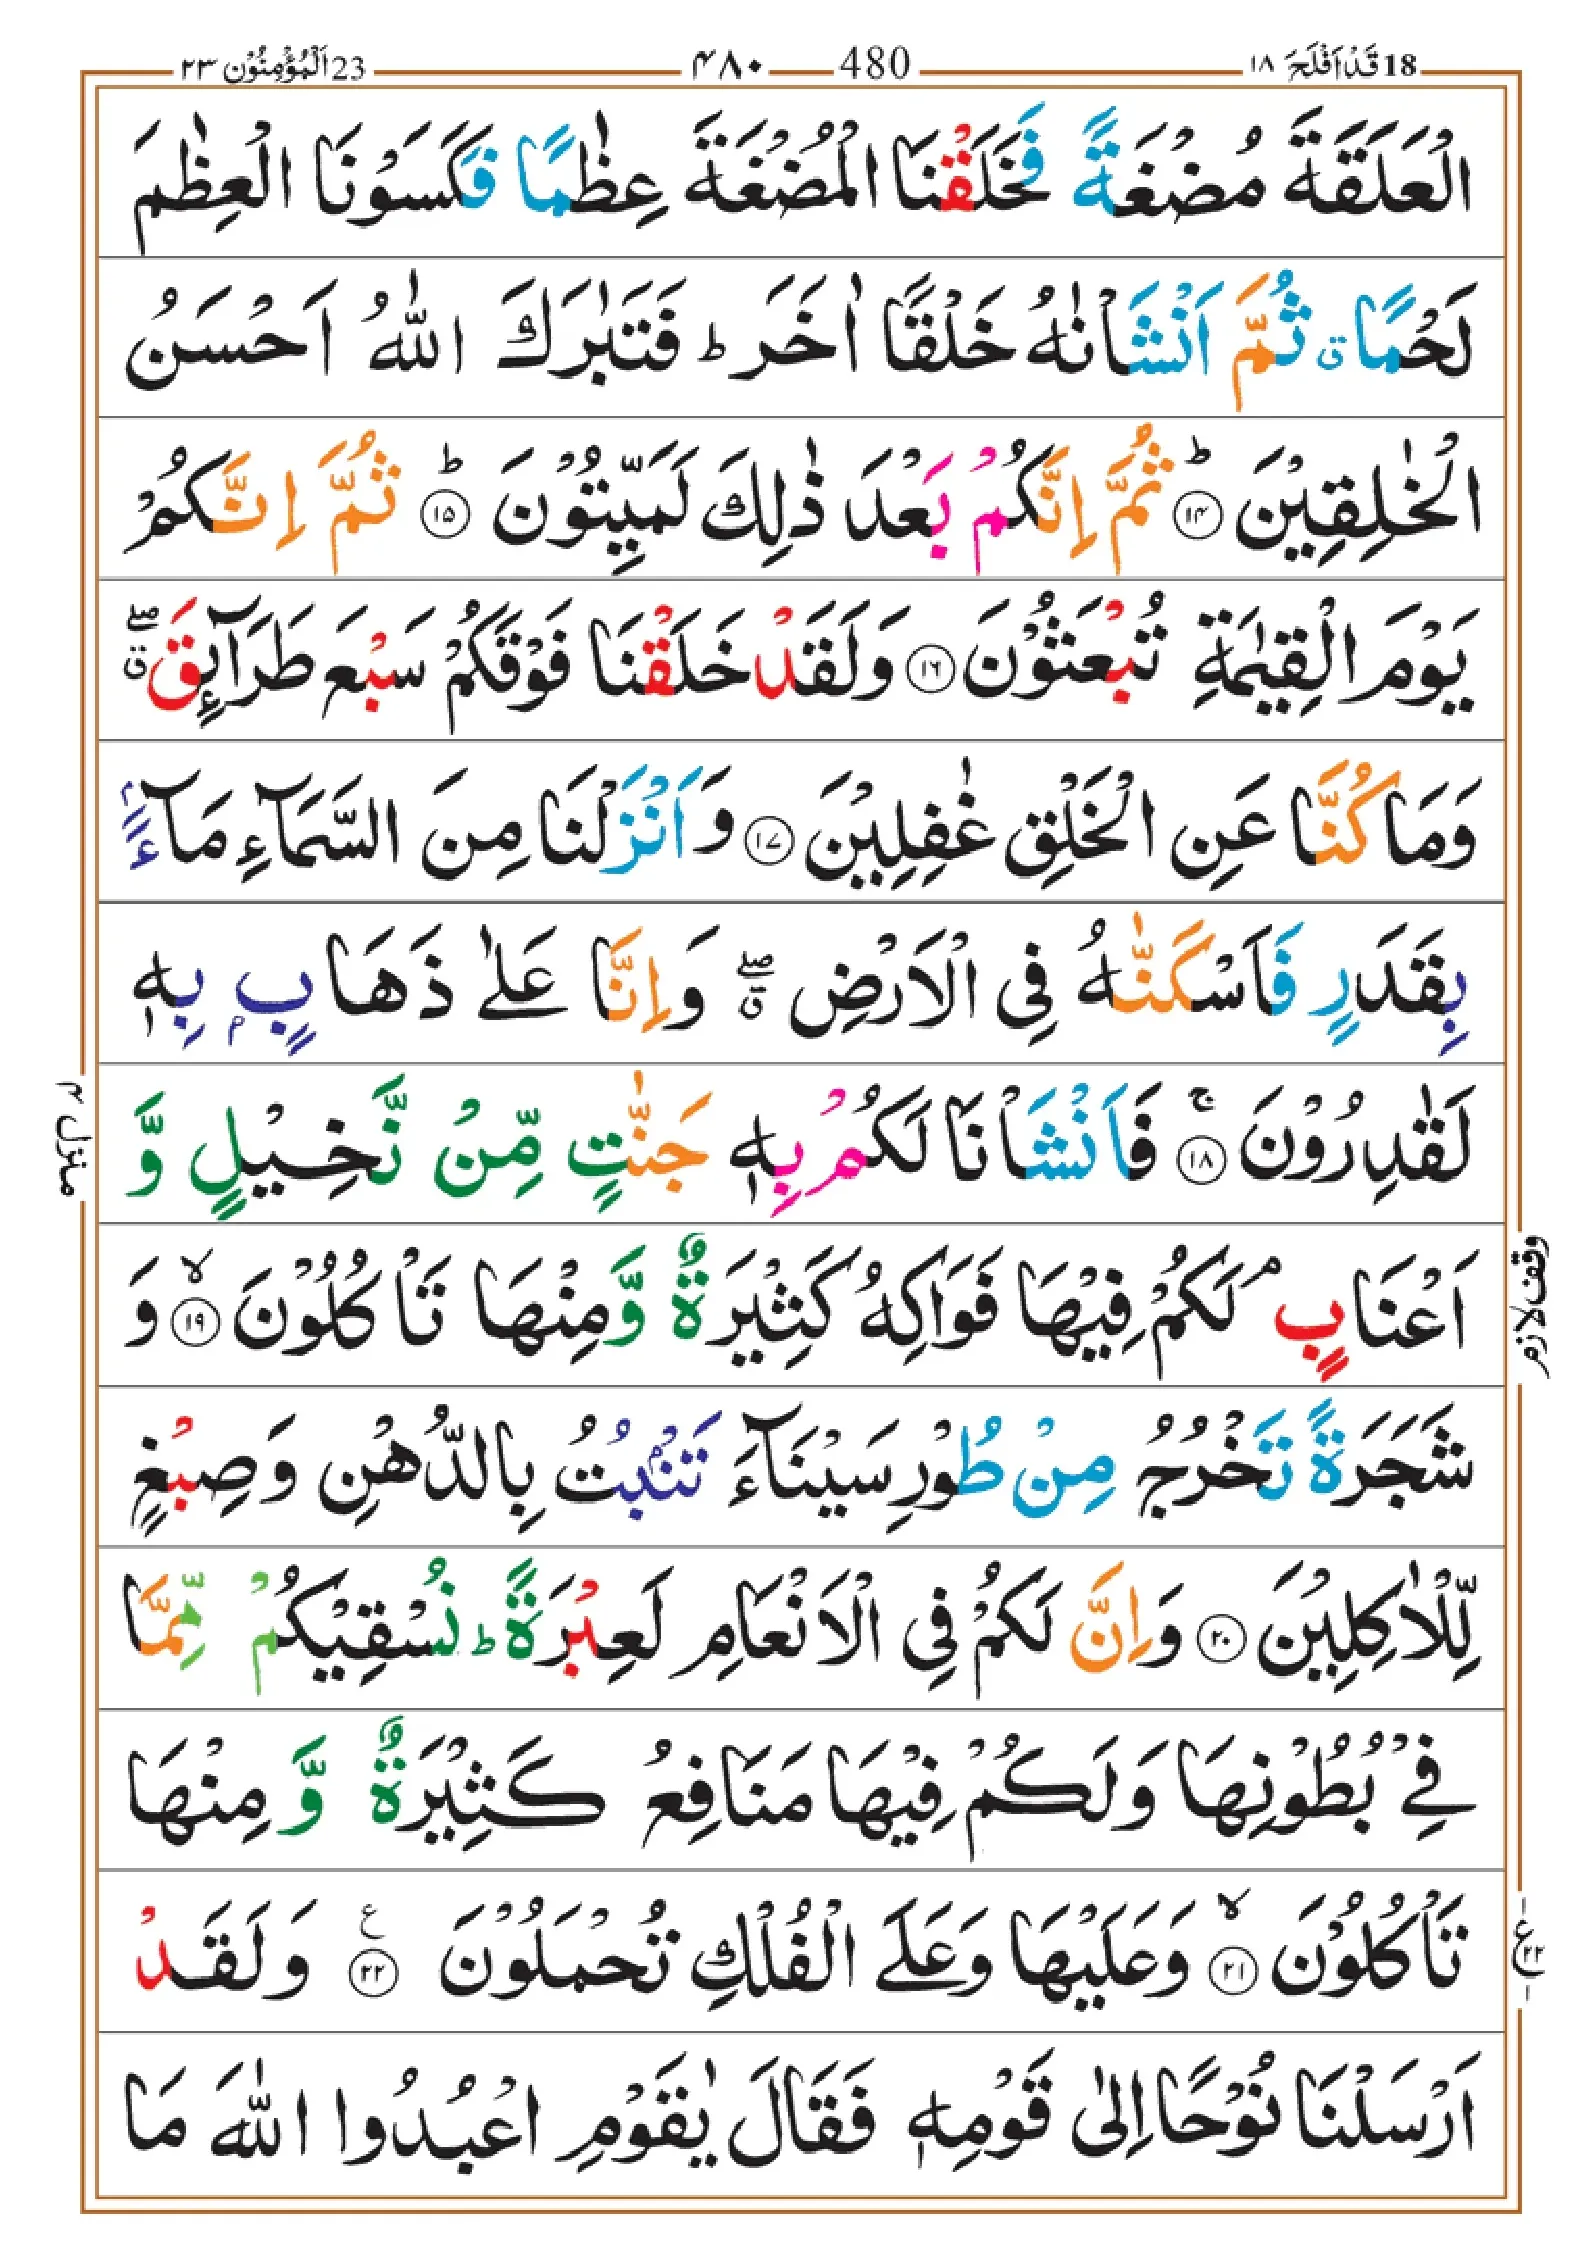 18 قَدْ اَفْلَحَ ١٨ 480 ۴۸۰ 23 اَلْمُؤْمِنُوْن ٢٣
الْعَلَقَةَ مُضْغَةً فَخَلَقْنَا الْمُضْغَةَ عِظٰمًا فَكَسَوْنَا الْعِظٰمَ
لَحْمًا ۗ ثُمَّ اَنْشَاْنٰهُ خَلْقًا اٰخَرَ ؕ فَتَبٰرَكَ اللّٰهُ اَحْسَنُ
الْخٰلِقِيْنَ ؕ ﴿۱۴﴾ ثُمَّ اِنَّكُمْ بَعْدَ ذٰلِكَ لَمَيِّتُوْنَ ؕ ﴿۱۵﴾ ثُمَّ اِنَّكُمْ
يَوْمَ الْقِيٰمَةِ تُبْعَثُوْنَ ﴿۱۶﴾ وَلَقَدْ خَلَقْنَا فَوْقَكُمْ سَبْعَ طَرَآئِقَ ۖۗ
وَمَا كُنَّا عَنِ الْخَلْقِ غٰفِلِيْنَ ﴿۱۷﴾ وَاَنْزَلْنَا مِنَ السَّمَآءِ مَآءًۢ
بِقَدَرٍ فَاَسْكَنّٰهُ فِى الْاَرْضِ ۖۗ وَاِنَّا عَلٰى ذَهَابٍۢ بِهٖ
لَقٰدِرُوْنَ ۚ ﴿۱۸﴾ فَاَنْشَاْنَا لَكُمْ بِهٖ جَنّٰتٍ مِّنْ نَّخِيْلٍ وَّ
اَعْنَابٍ ۘ لَكُمْ فِيْهَا فَوَاكِهُ كَثِيْرَةٌ وَّمِنْهَا تَاْكُلُوْنَ ۙ ﴿۱۹﴾ وَ
شَجَرَةً تَخْرُجُ مِنْ طُوْرِ سَيْنَآءَ تَنْۢبُتُ بِالدُّهْنِ وَصِبْغٍ
لِّلْاٰكِلِيْنَ ﴿۲۰﴾ وَاِنَّ لَكُمْ فِى الْاَنْعَامِ لَعِبْرَةً ؕ نُسْقِيْكُمْ مِّمَّا
فِيْ بُطُوْنِهَا وَلَكُمْ فِيْهَا مَنَافِعُ كَثِيْرَةٌ وَّمِنْهَا
تَاْكُلُوْنَ ۙ ﴿۲۱﴾ وَعَلَيْهَا وَعَلَى الْفُلْكِ تُحْمَلُوْنَ ﴿۲۲﴾ ع وَلَقَدْ
اَرْسَلْنَا نُوْحًا اِلٰى قَوْمِهٖ فَقَالَ يٰقَوْمِ اعْبُدُوا اللّٰهَ مَا
منزل ۴
وقف لازم
ع ٢٢